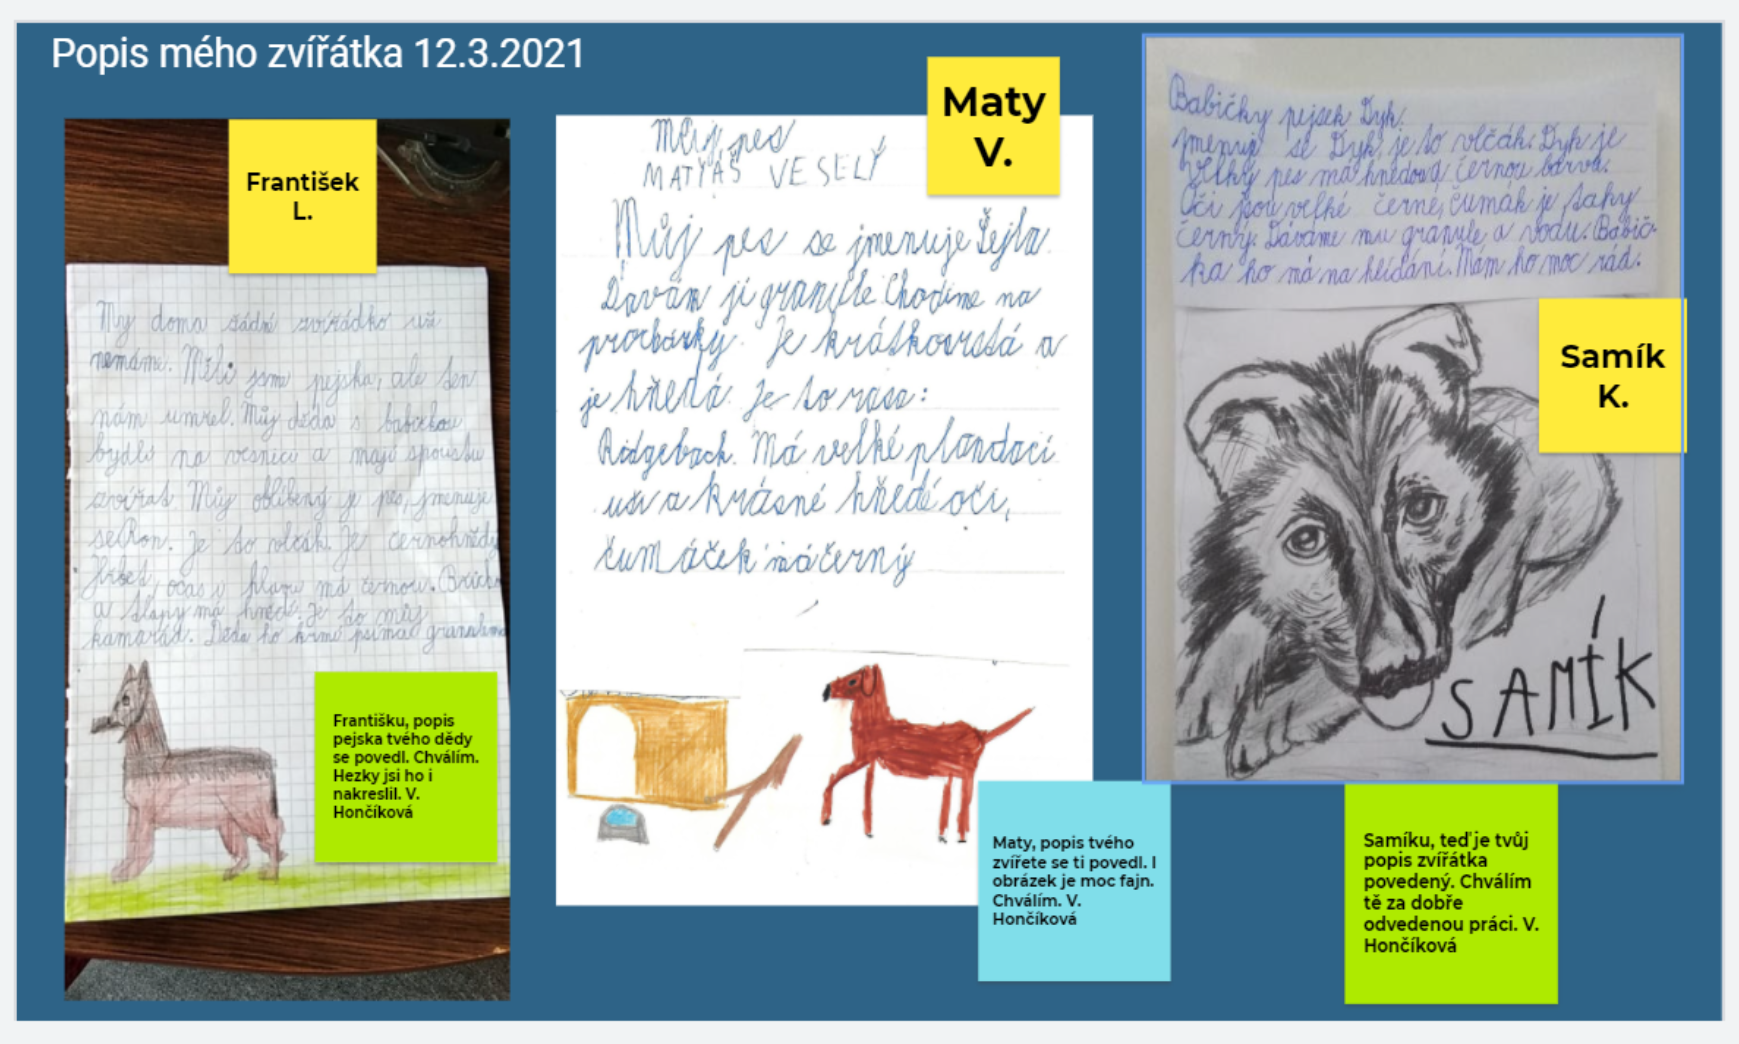 Popis mého zvířátka 12.3.2021
František
L.
My doma žádné zvířádko už
nemáme. Měli jsme pejska, ale ten
nám umřel. Můj děda s babičkou
bydlí na vesnici a mají spoustu
zvířat. Můj oblíbený je pes, jmenuje
se Ron. Je to vlčák. Je černohnědý
Hřbet, ocas a hlavu má černou. Břicho
a tlapy má hnědé. Je to můj
kamarád. Děda ho krmí psíma granulema
Františku, popis
pejska tvého dědy
se povedl. Chválím.
Hezky jsi ho i
nakreslil. V.
Hončíková
Maty
V.
Můj pes
MATYÁŠ VESELÝ
Můj pes se jmenuje Šejla.
Dávám jí granule. Chodíme na
procházky. Je krátkosrstá a
je hňedá. Je to rasa:
Ridgeback. Má velké plandací
uši a krásné hňedé oči,
čumáček má černý
Maty, popis tvého
zvířete se ti povedl. I
obrázek je moc fajn.
Chválím. V.
Hončíková
Babičky pejsek Dyk.
Jmenuje se Dyk, je to vlčák. Dyk je
Velký pes má hnědou a černou barvu.
Oči jsou velké černé, čumák je taky
černý. Dáváme mu granule a vodu. Babič-
ka ho má na hlídání. Mám ho moc rád.
Samík
K.
SAMÍK
Samíku, teď je tvůj
popis zvířátka
povedený. Chválím
tě za dobře
odvedenou práci. V.
Hončíková